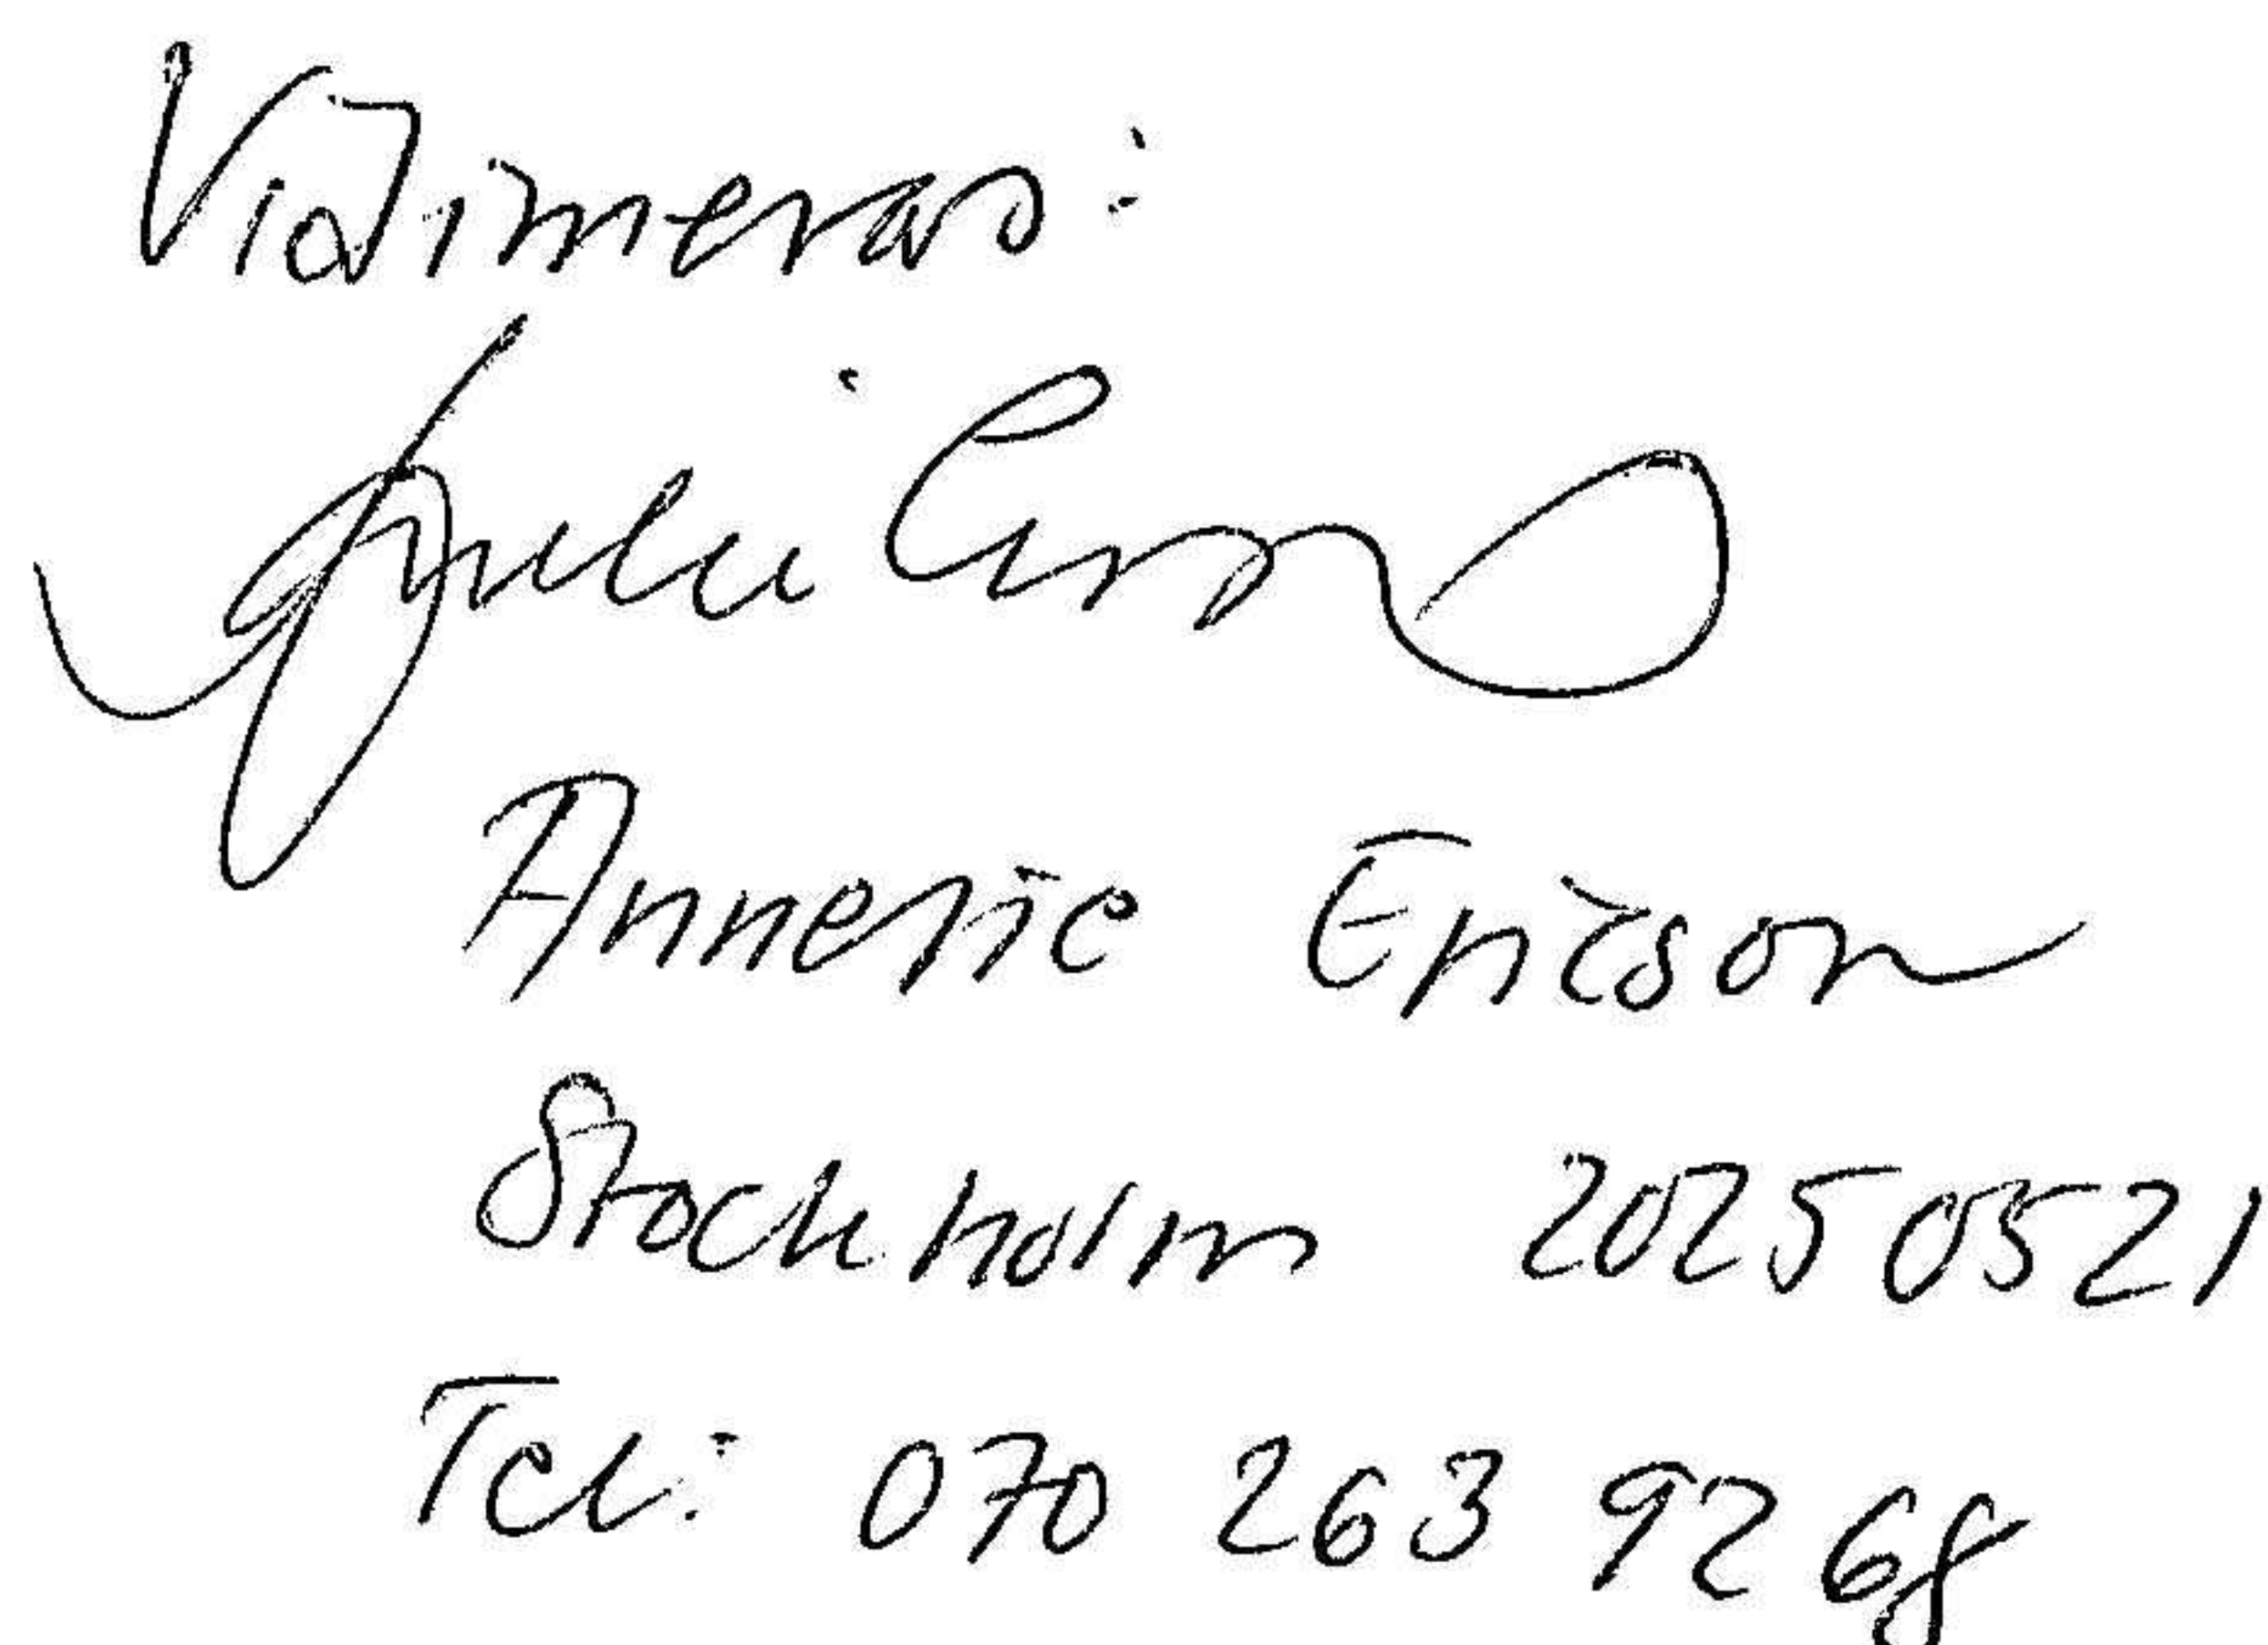 Vidimeras:
Annelie Ericson
Stockholm 20250521
Tel: 070 263 92 68